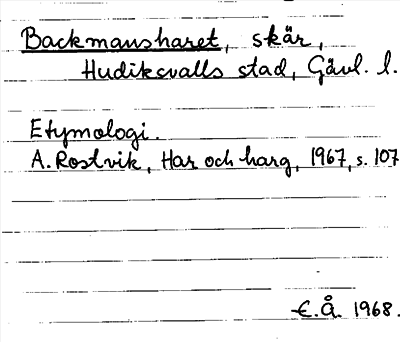 Backmansharet, skär,
Hudiksvalls stad, Gävl. l.
Etymologi.
A. Rostvik, Har och harg, 1967, s. 107
E.Å. 1968.